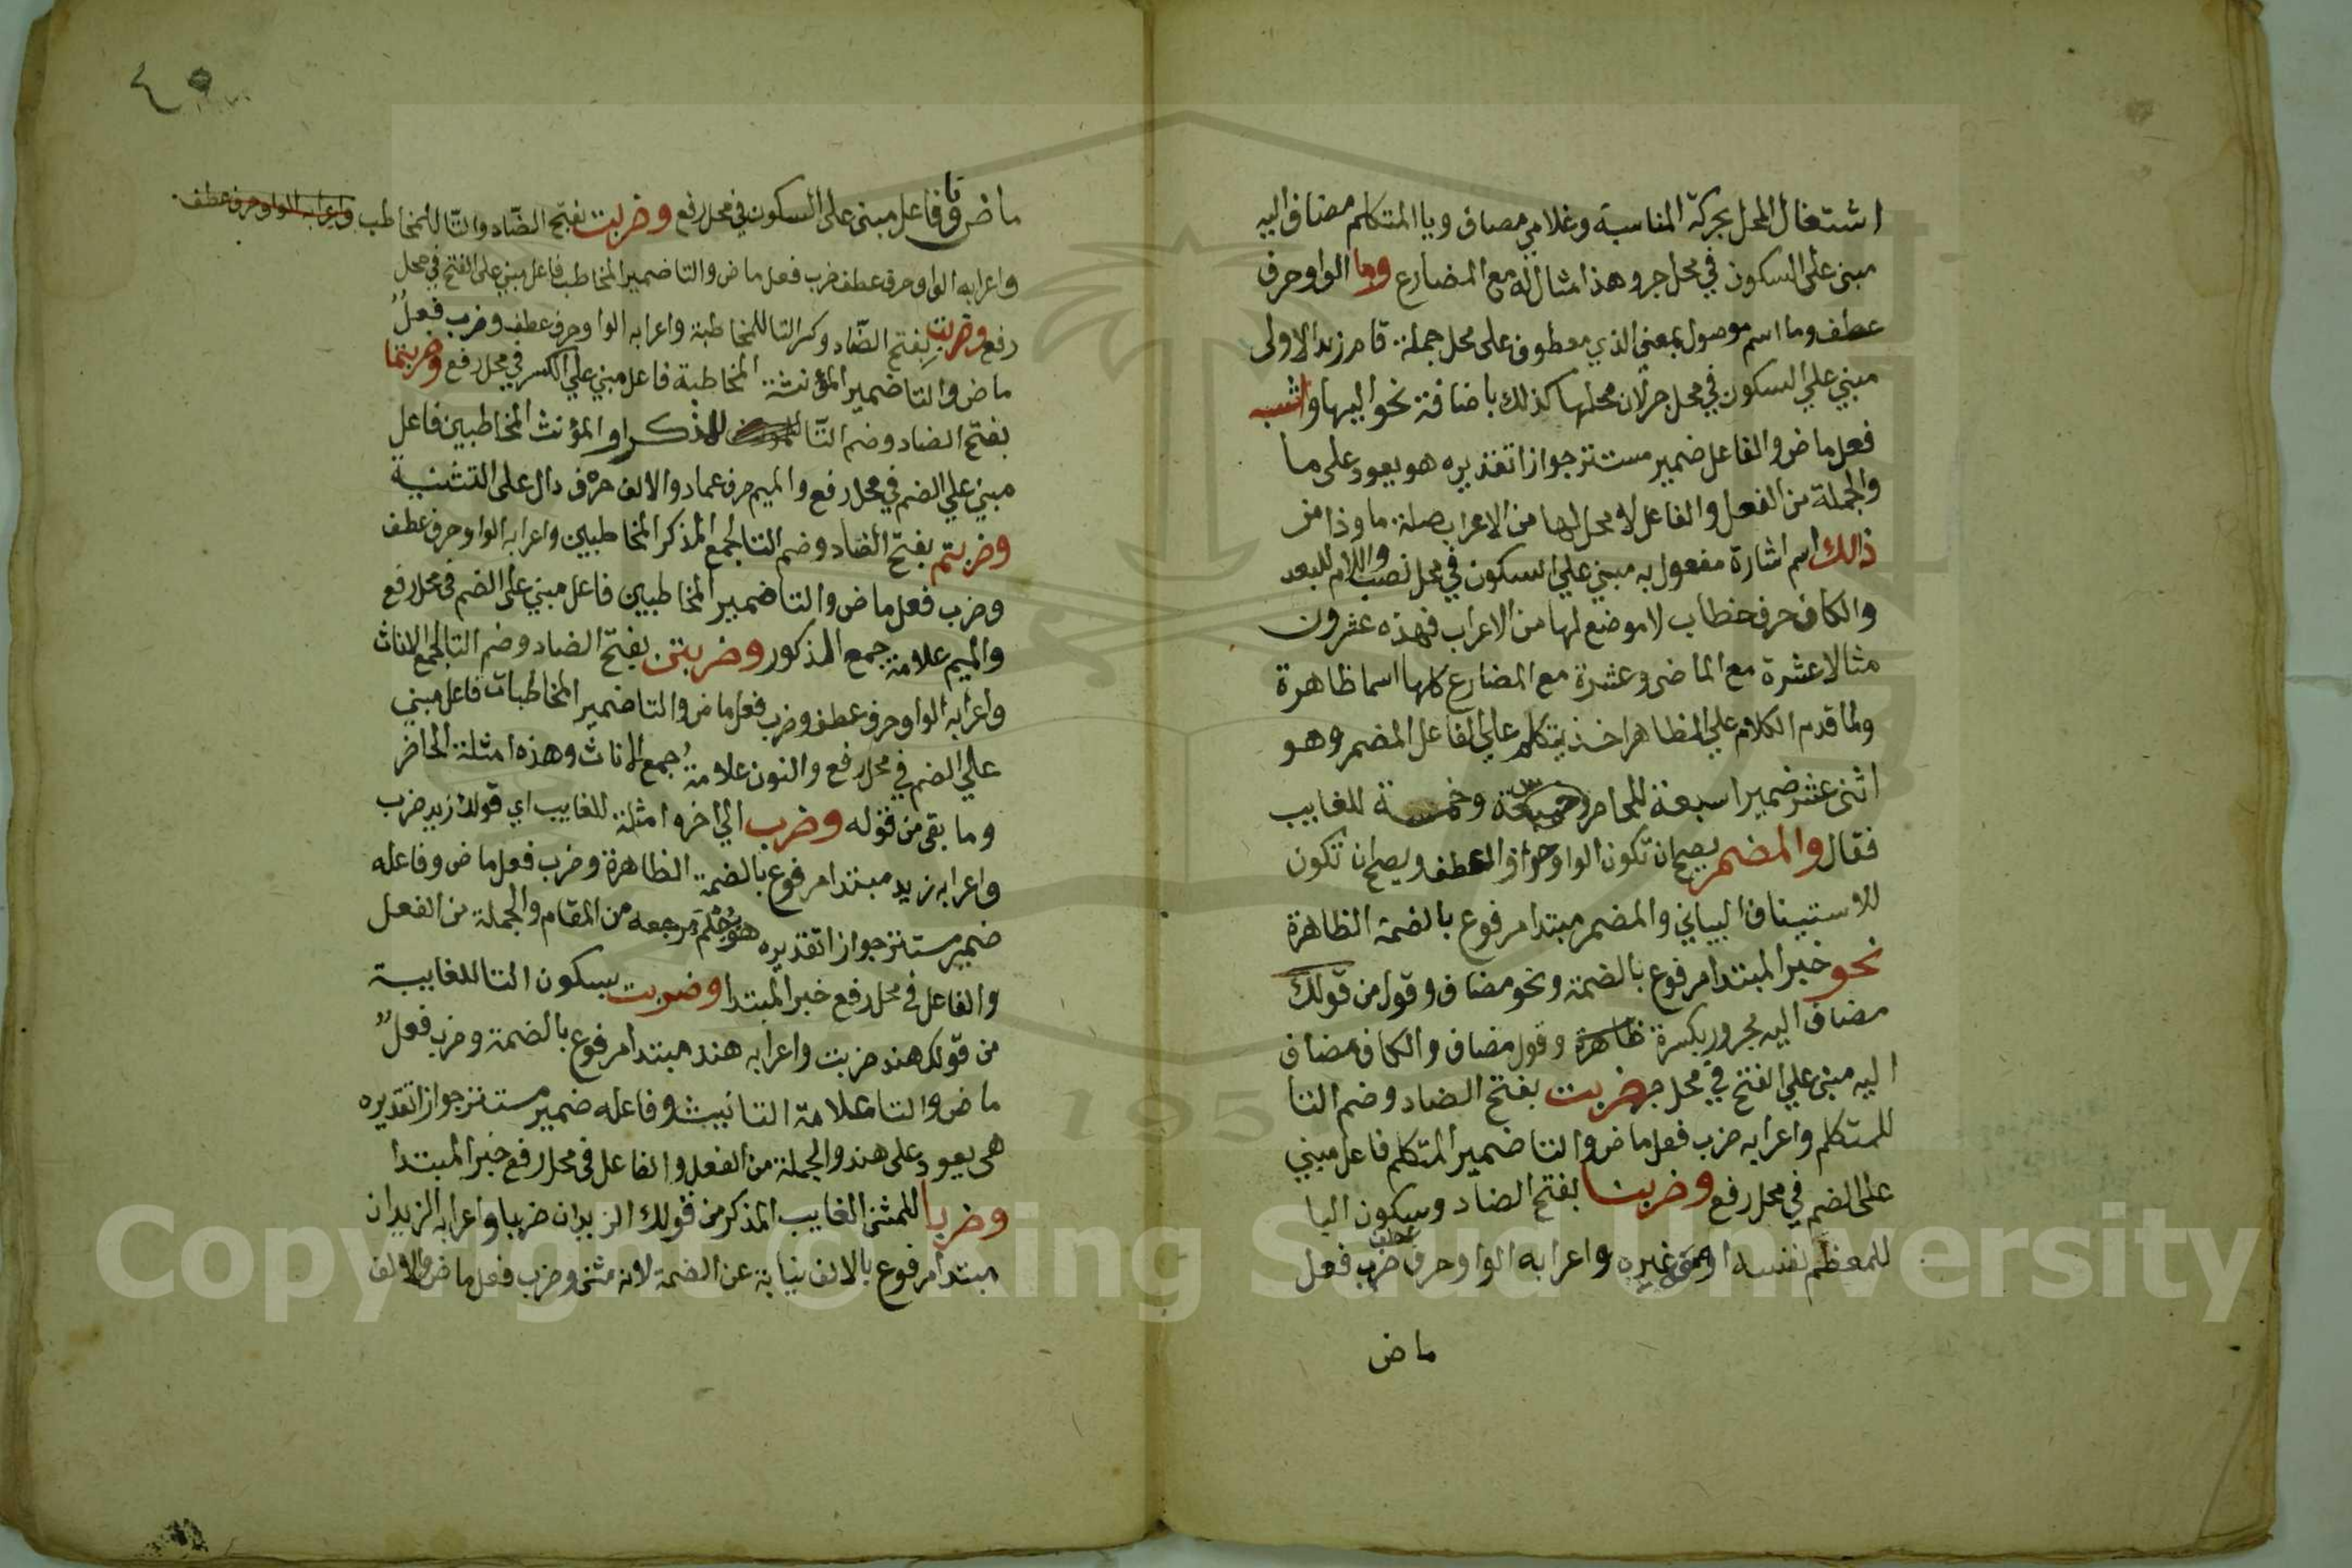 اشتغال المحل بحركة المناسبة وغلامي مضاف ويا المتكلم مضاف اليه
مبني على السكون في محل جر وهذا مثاله مع المضارع وما الواو حرف
عطف وما اسم موصول بمعني الذي معطوف على محل جملة قام زيد الاولى
مبني علي السكون في محل جر لان محلها كذلك باضافة نحو اليها واشبه
فعل ماض والفاعل ضمير مستتر جوازا تقديره هو يعود على ما
والجملة من الفعل والفاعل لا محل لها من الاعراب صلة ما وذا من
ذالك اسم اشارة مفعول به مبني علي السكون في محل نصب واللام للبعد
والكاف حرف خطاب لا موضع لها من الاعراب فهذه عشرون
مثالا عشرة مع الماضى وعشرة مع المضارع كلها اسما ظاهرة
ولما قدم الكلام علي الظاهر اخذ يتكلم علي الفاعل المضمر وهو
اثنى عشر ضميرا سبعة للحاضر وخمسة للغايب
فقال والمضمر يصح ان تكون الواو حرف العطف ويصح ان تكون
للاستيناف البياني والمضمر مبتدا مرفوع بالضمة الظاهرة
نحو خبر المبتدا مرفوع بالضمة ونحو مضاف وقول من قولك
مضاف اليه مجرور بكسرة ظاهرة وقول مضاف والكاف مضاف
اليه مبني علي الفتح في محل جر ضربت بفتح الضاد وضم التا
للمتكلم واعرابه ضرب فعل ماض والتا ضمير المتكلم فاعل مبني
على الضم في محل رفع وضربنا بفتح الضاد وسكون البا
للمعظم نفسه او معه غيره واعرابه الواو حرف عطف ضرب فعل
ماض
٤٥
ماض ونا فاعل مبنى على السكون في محل رفع وضربت بفتح الضاد والتا للمخاطب واعرابه الواو حرف عطف
واعرابه الواو حرف عطف ضرب فعل ماض والتا ضمير المخاطب فاعل مبني على الفتح في محل
رفع وضربت بفتح الضاد وكسر التا للمخاطبة واعرابه الواو حرف عطف وضرب فعل
ماض والتا ضمير المؤنثة المخاطبة فاعل مبني علي الكسر في محل رفع وضربتما
بفتح الضاد وضم التا للمذكر او المؤنث المخاطبين فاعل
مبني علي الضم في محل رفع والميم حرف عماد والالف حرف دال على التثنية
وضربتم بفتح الضاد وضم التا لجمع المذكر المخاطبين واعرابه الواو حرف عطف
وضرب فعل ماض والتا ضمير المخاطبين فاعل مبني على الضم في محل رفع
والميم علامة جمع المذكور وضربتن بفتح الضاد وضم التا لجمع الاناث
واعرابه الواو حرف عطف وضرب فعل ماض والتا ضمير المخاطبات فاعل مبني
علي الضم في محل رفع والنون علامة جمع الاناث وهذه امثلة الحاضر
وما بقى من قوله وضرب الي اخره امثلة للغايب اي قولك زيد ضرب
واعرابه زيد مبتدا مرفوع بالضمة الظاهرة وضرب فعل ماض وفاعله
ضمير مستتر جوازا تقديره هو مرجعه من المقام والجملة من الفعل
والفاعل في محل رفع خبر المبتدا وضربت بسكون التا للغايبة
من قولك هند ضربت واعرابه هند مبتدا مرفوع بالضمة وضرب فعل
ماض والتا علامة التانيث وفاعله ضمير مستتر جوازا تقديره
هى يعود على هند والجملة من الفعل والفاعل في محل رفع خبر المبتدا
وضربا للمثنى الغايب المذكر من قولك الزيدان ضربا واعرابه الزيدان
مبتدا مرفوع بالالف نيابة عن الضمة لانه مثنى وضرب فعل ماض والالف
Copyright © King Saud University
1957